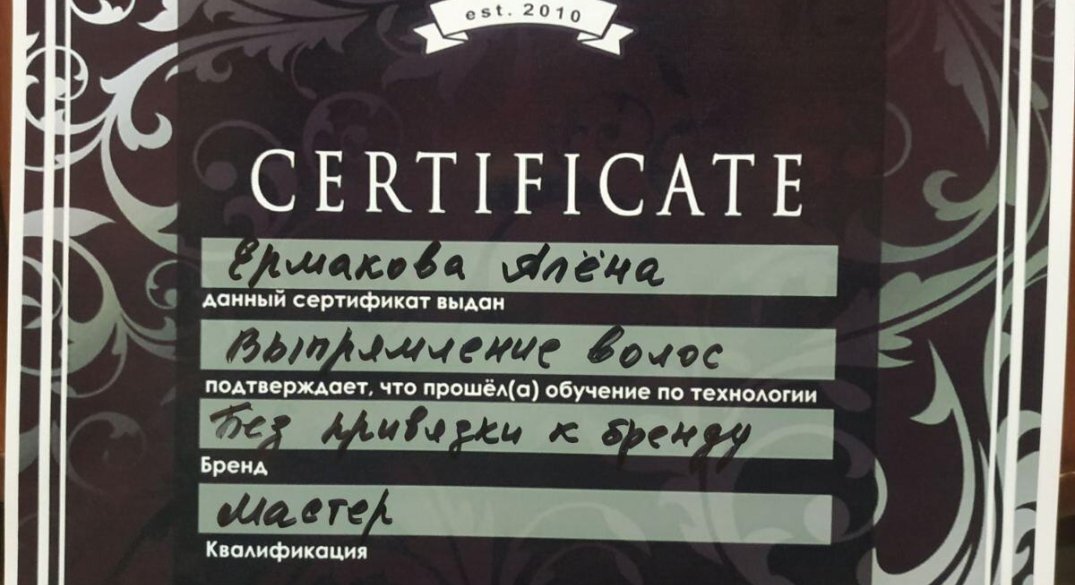 est. 2010
CERTIFICATE
Ермакова Алёна
данный сертификат выдан
Выпрямление волос
подтверждает, что прошёл(а) обучение по технологии
Без привязки к бренду
Бренд
Мастер
Квалификация